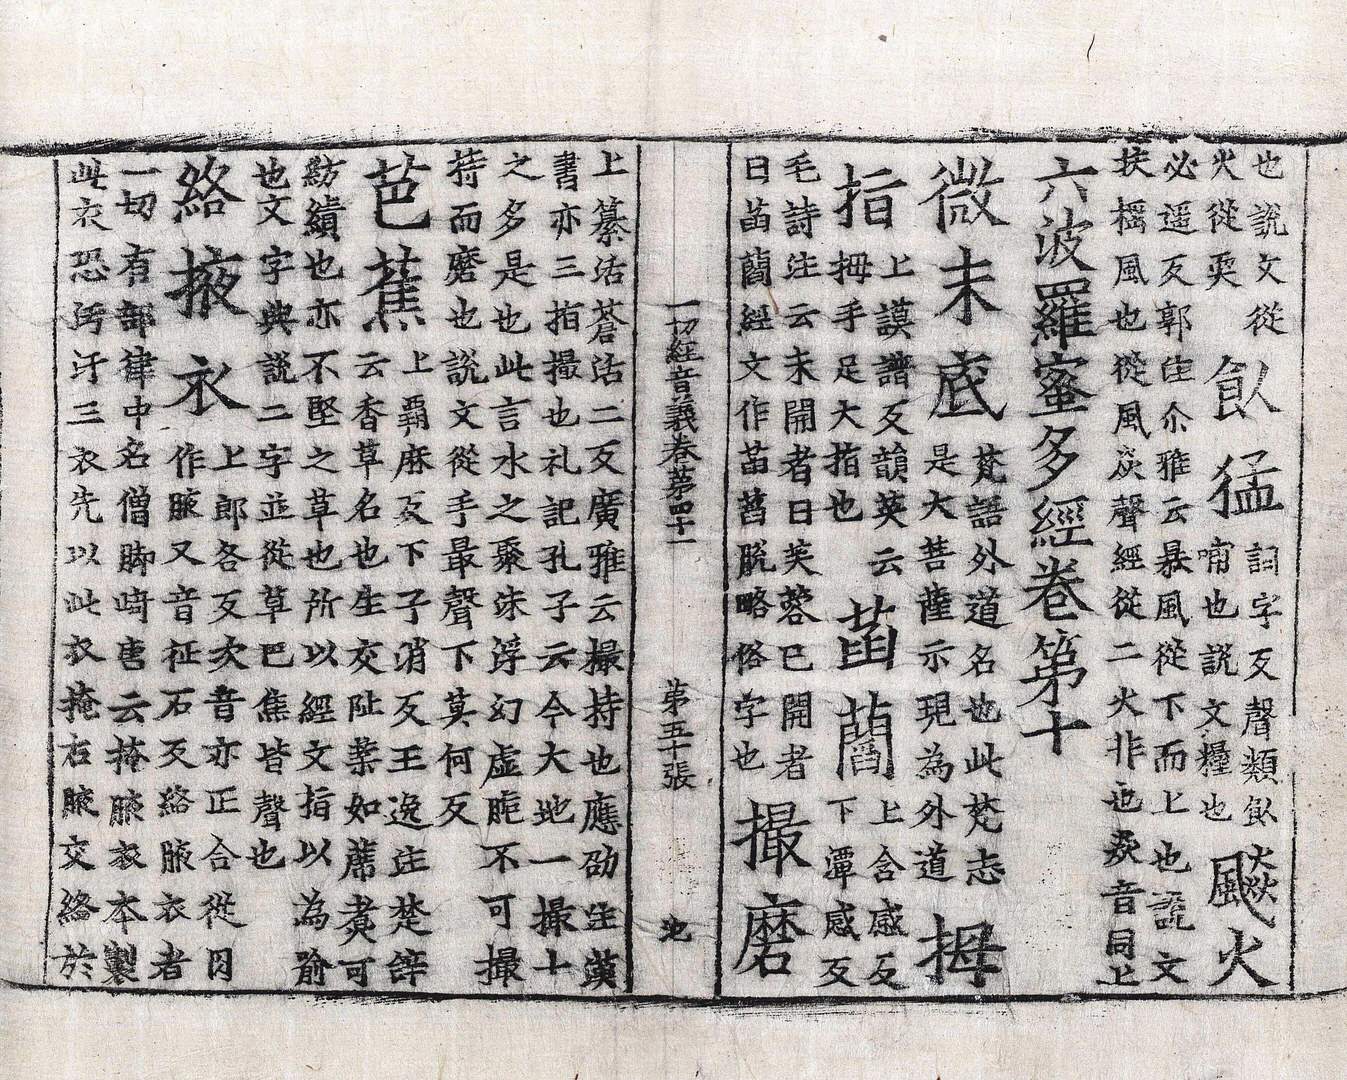 也說文從
火從耎
飤猛
詞字反聲類飤
哺也說文糧也
飈火
必遥反郭注尒雅云暴風從下而上也說文
扶摇風也從風猋聲經從二火非也猋音同上
六波羅蜜多經卷第十
微末底
梵語外道名也此梵志
是大菩薩示現為外道
拇
指
上謨譜反韻英云
拇手足大指也
菡萏
上含感反
下潭感反
毛詩注云未開者曰芙蓉已開者
曰菡萏經文作菡萏脫略俗字也
撮磨
一切經音義卷苐四十一
苐五十張
上纂活蒼活二反廣雅云撮持也應劭注漢
書亦三指撮也礼記孔子云今大地一撮土
之多是也此言水之聚沫浮幻虚脆不可撮
持而磨也說文從手最聲下莫何反
芭蕉
上霸麻反下子消反王逸注楚辭
云香草名也生交阯葉如蓆煑可
紡績也亦不堅之草也所以經文指以為喻
也文字典說二字並從草巴焦皆聲也
絡掖衣
上郎各反次音亦正合從月
作腋又音征石反絡腋衣者
一切有部律中名僧脚崎唐云掩腋衣本製
此衣恐汚汗三衣先以此衣掩右腋交絡於